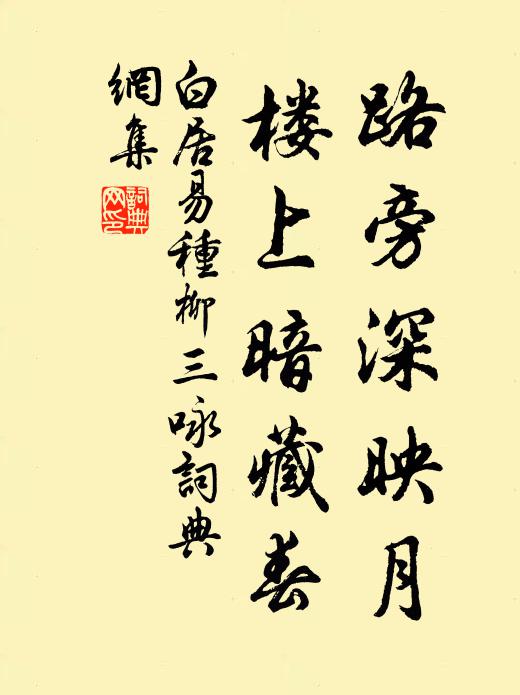 路旁深映月
楼上暗藏春
白居易種柳三咏詞典
網集
詞典
网印